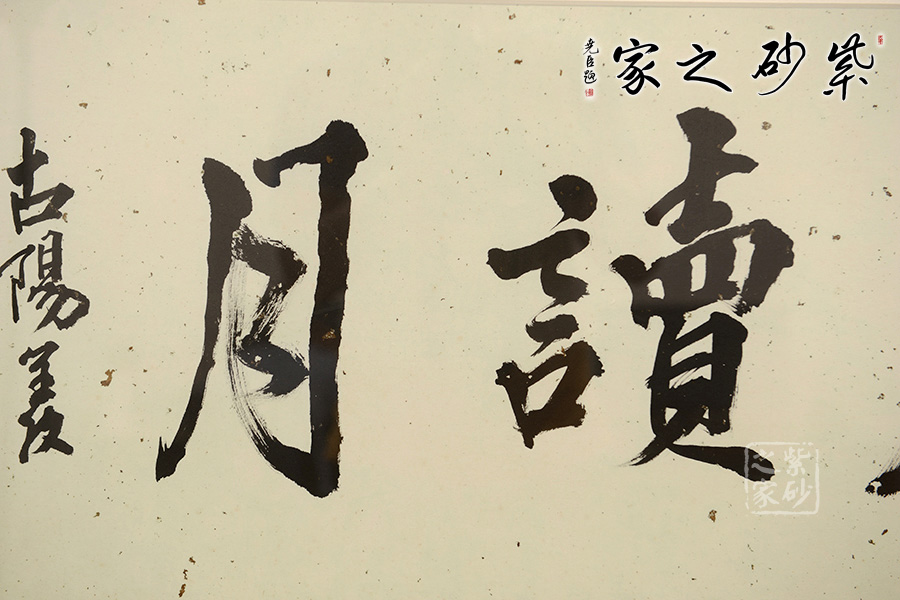 紫砂之家
堯臣題
讀月
古陽羨
紫砂
之家